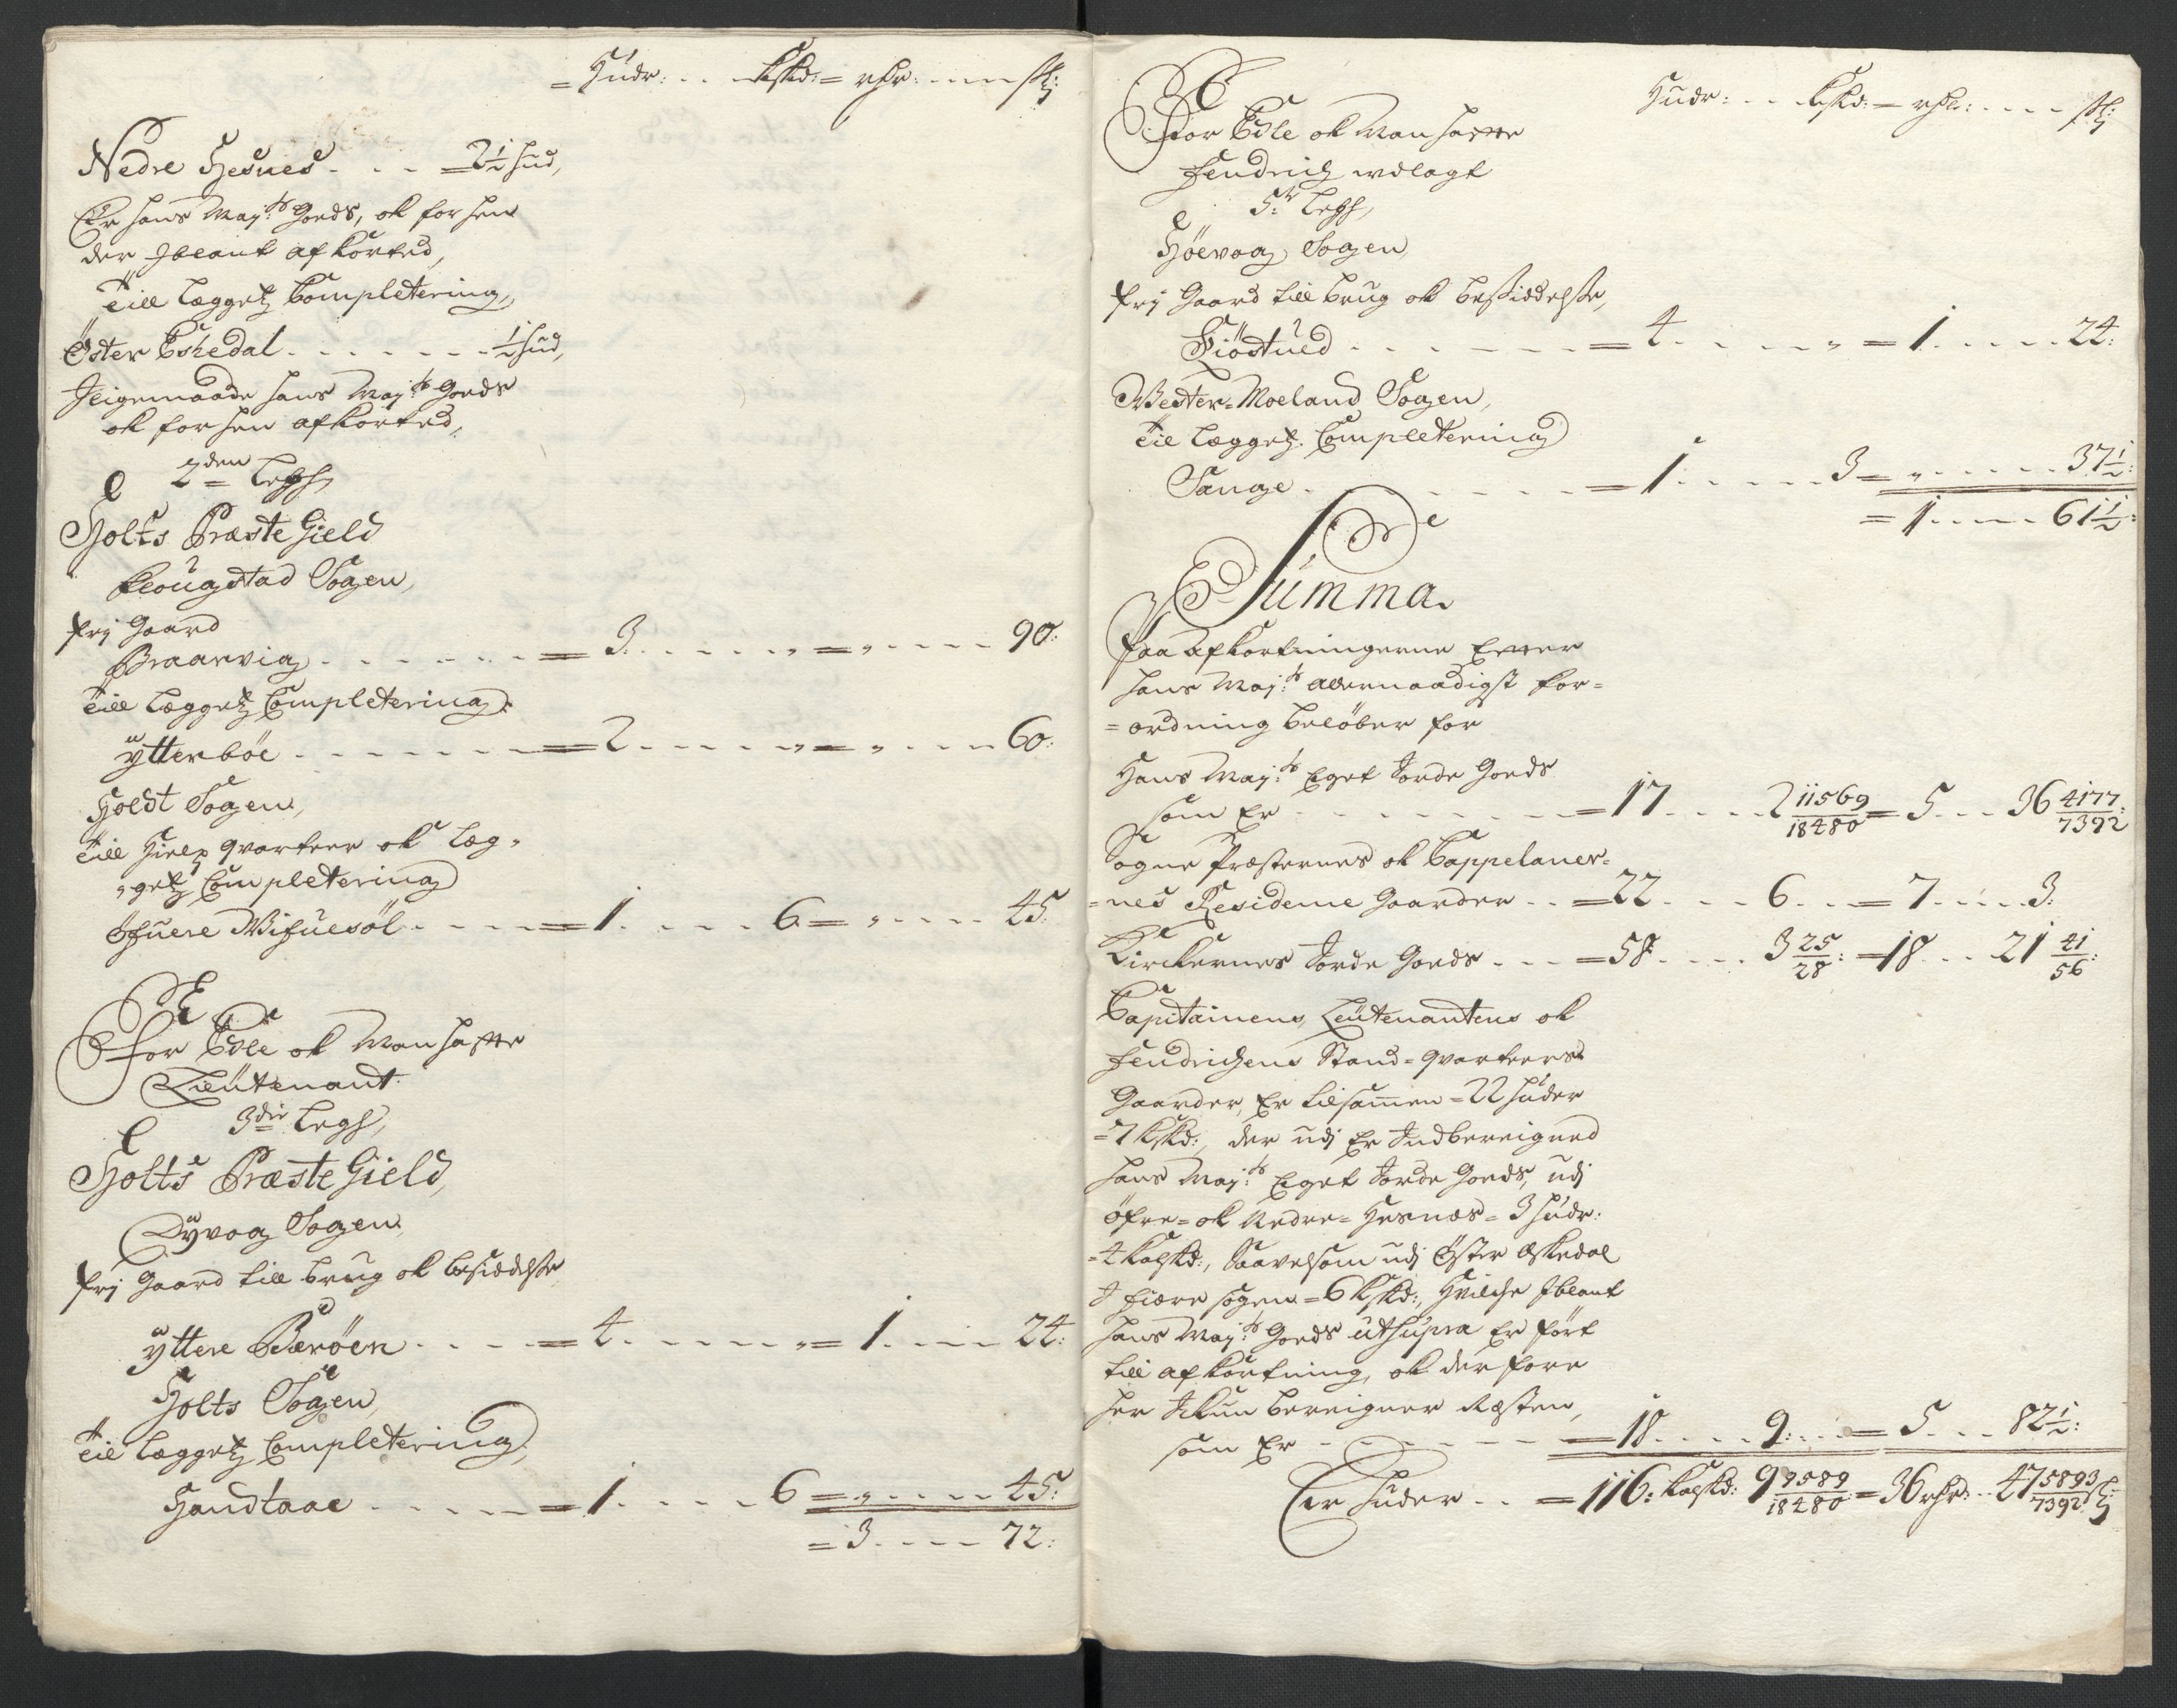 = Hudr: . . Kskd: = rdr: . . . . ß:
Nedre Hesnes . . . = 2½ hud,
Er hans Maj:ts Gods, ok forhen
der Iblant afkorted,
Till Legget Completering,
Öster Eskedal . . . . . . . ½ hud,
Iligemaade hans Maj:ts Gods
ok forhen afkorted,
2den Legh,
Holts Præste Gield
Flougstad Sogen,
frj Gaard
Braarvig . . . . . . = 3 . . . . . „ = „ . . . . 90:
Till Legget Completering,
Ytterböe . . . . . . = 2 . . . . „ = „ . . . . 60:
Holdt Sogen,
Till Hielp qvarteer ok Leg-
get Completering
Ofuere Vifuesöl . . . . = 1 . . . . 6 = „ . . . . 45:
For Edle ok Manhaffte
Lieutenant
3die Legh,
Holts Præste Gield,
Dyvog Sogen,
frj Gaard till brug ok besiddelse
Yttere Beröen . . . . = 4 . . . . . „ = 1 . . . . 24:
Holts Sogen,
Till Legget Completering,
Handtaae . . . . . = 1 . . . . 6 = „ . . . . 45:
= 3 . . . . 72:
Hudr: . . Kskd: = rdr: . . . . ß:
For Edle ok Manhaffte
Fendrich udlagt
5te Legh,
Höevog Sogen,
frj Gaard till brug ok besiddelse,
Fiöstued . . . . . . = 4 . . . . . „ = 1 . . . . . 24:
Wester-Moeland Sogen,
Till Legget Completering
Sange . . . . . . . = 1 . . . . . 3 = „ . . . . . 37½:
= 1 . . . . 61½:
Summa
Paa afkortningerne Effter
hans Maj:ts allernaadigst for=
=ordning belöber for
Hans Maj:ts Eget Jorde Gods
som Er . . . . . . . . = 17 . . . . 2 11569/18480 = 5 . . . 36 4177/7392:
Sogne Præsternes ok Cappelaner=
=nes Residence Gaarder . . = 22 . . . . 6 . . . = 7 . . . . 3:
Kirckernes Jorde Gods . . . = 58 . . . . 3 25/28: = 18 . . . 21 41/56:
Capitainens, Leutenantens ok
Fendrichens Stand=qvarteers
Gaarder, Er tilsammen = 22 huder
= 7 Kskd:, der udj Er Indbereigned
hans Maj:ts Eget Jorde Gods, udj
öfre= ok Nedre= Hesnæs= 3 hudr:
= 4 Kalskd:, Saavelsom udj Öster Eskedal
I fiære sogen = 6 Kskd:, Hvilche Iblant
hans Maj:ts Gods ut supra Er fört
till afkortning, ok derfore
her Ickun bereigner Resten,
som Er . . . . . . . = 18 . . . . 9: . . . = 5 . . . . 82½:
Er Huder . . = 116: Kalskd: 9 9589/18480 = 36 rdr: . . 47 5893/7392 ß